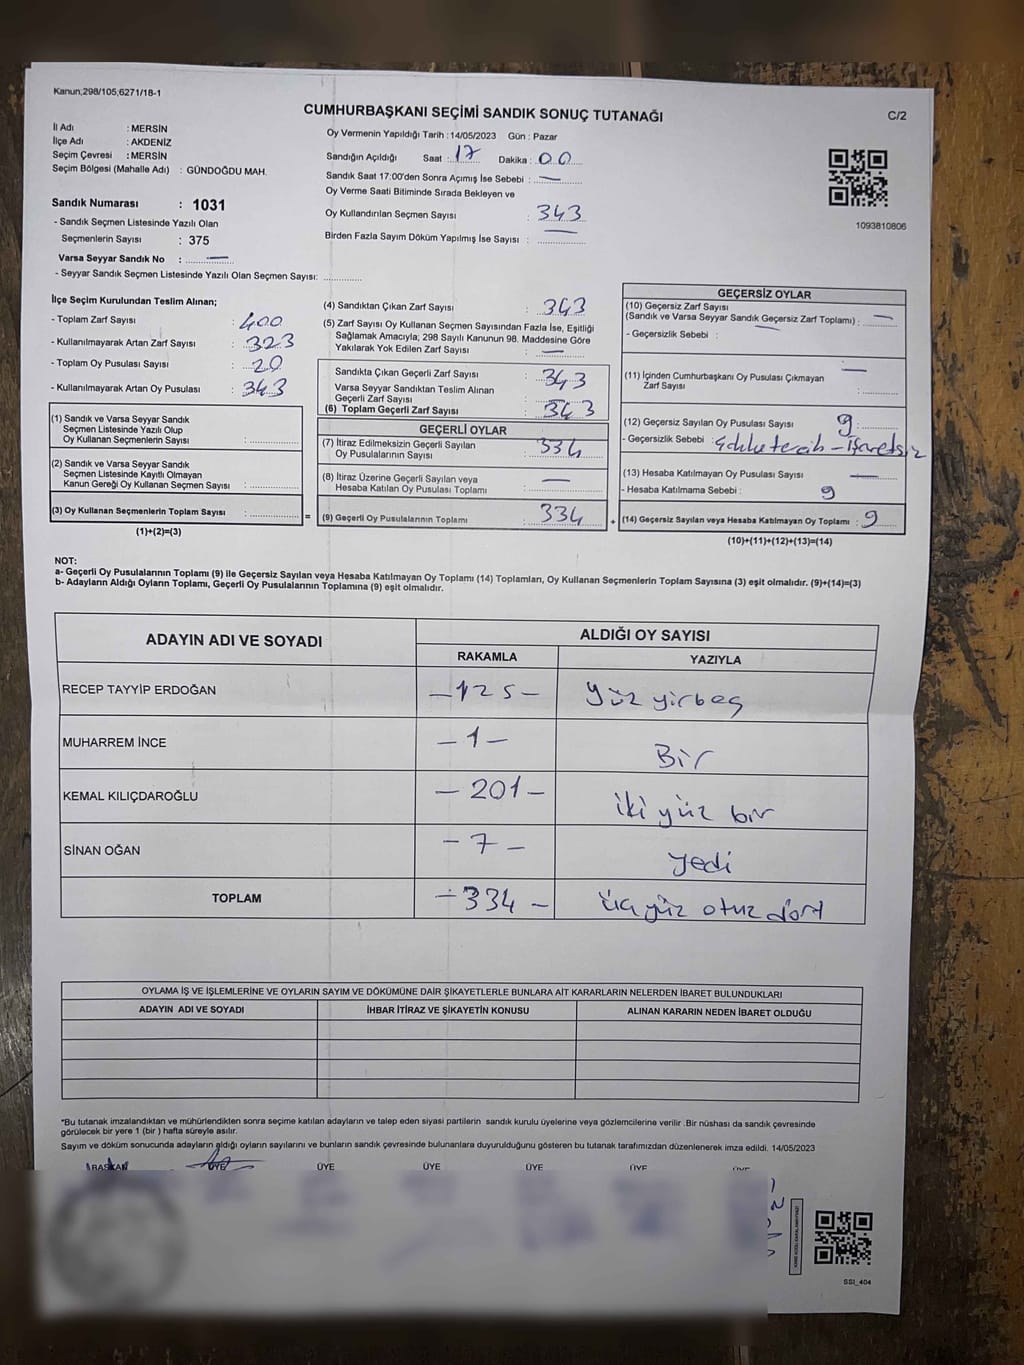 Kanun;298/105,6271/18-1
CUMHURBAŞKANI SEÇİMİ SANDIK SONUÇ TUTANAĞI
C/2
İl Adı : MERSİN
İlçe Adı : AKDENİZ
Seçim Çevresi : MERSİN
Seçim Bölgesi (Mahalle Adı) : GÜNDOĞDU MAH.
Sandık Numarası : 1031
- Sandık Seçmen Listesinde Yazılı Olan
Seçmenlerin Sayısı : 375
Varsa Seyyar Sandık No : —
- Seyyar Sandık Seçmen Listesinde Yazılı Olan Seçmen Sayısı:
Oy Vermenin Yapıldığı Tarih : 14/05/2023 Gün : Pazar
Sandığın Açıldığı Saat : 17 Dakika : 00
Sandık Saat 17:00'den Sonra Açımış İse Sebebi : —
Oy Verme Saati Bitiminde Sırada Bekleyen ve
Oy Kullandırılan Seçmen Sayısı : 343
Birden Fazla Sayım Döküm Yapılmış İse Sayısı : —
1093810806
İlçe Seçim Kurulundan Teslim Alınan;
- Toplam Zarf Sayısı : 400
- Kullanılmayarak Artan Zarf Sayısı : 323
- Toplam Oy Pusulası Sayısı : 20
- Kullanılmayarak Artan Oy Pusulası : 343
(1) Sandık ve Varsa Seyyar Sandık
Seçmen Listesinde Yazılı Olup
Oy Kullanan Seçmenlerin Sayısı :
(2) Sandık ve Varsa Seyyar Sandık
Seçmen Listesinde Kayıtlı Olmayan
Kanun Gereği Oy Kullanan Seçmen Sayısı :
(3) Oy Kullanan Seçmenlerin Toplam Sayısı : =
(1)+(2)=(3)
(4) Sandıktan Çıkan Zarf Sayısı : 343
(5) Zarf Sayısı Oy Kullanan Seçmen Sayısından Fazla İse, Eşitliği
Sağlamak Amacıyla; 298 Sayılı Kanunun 98. Maddesine Göre
Yakılarak Yok Edilen Zarf Sayısı : —
Sandıkta Çıkan Geçerli Zarf Sayısı : 343
Varsa Seyyar Sandıktan Teslim Alınan
Geçerli Zarf Sayısı :
(6) Toplam Geçerli Zarf Sayısı : 343
GEÇERLİ OYLAR
(7) İtiraz Edilmeksizin Geçerli Sayılan
Oy Pusulalarının Sayısı : 334
(8) İtiraz Üzerine Geçerli Sayılan veya
Hesaba Katılan Oy Pusulası Toplamı : —
(9) Geçerli Oy Pusulalarının Toplamı : 334 +
GEÇERSİZ OYLAR
(10) Geçersiz Zarf Sayısı
(Sandık ve Varsa Seyyar Sandık Geçersiz Zarf Toplamı) : —
- Geçersizlik Sebebi : —
(11) İçinden Cumhurbaşkanı Oy Pusulası Çıkmayan
Zarf Sayısı : —
(12) Geçersiz Sayılan Oy Pusulası Sayısı : 9
- Geçersizlik Sebebi : tercih - İşaretsiz
(13) Hesaba Katılmayan Oy Pusulası Sayısı : —
- Hesaba Katılmama Sebebi : 9
(14) Geçersiz Sayılan veya Hesaba Katılmayan Oy Toplamı : 9
(10)+(11)+(12)+(13)=(14)
NOT:
a- Geçerli Oy Pusulalarının Toplamı (9) ile Geçersiz Sayılan veya Hesaba Katılmayan Oy Toplamı (14) Toplamları, Oy Kullanan Seçmenlerin Toplam Sayısına (3) eşit olmalıdır. (9)+(14)=(3)
b- Adayların Aldığı Oyların Toplamı, Geçerli Oy Pusulalarının Toplamına (9) eşit olmalıdır.
ADAYIN ADI VE SOYADI ALDIĞI OY SAYISI
RAKAMLA YAZIYLA
RECEP TAYYİP ERDOĞAN -125- yüz yirbeş
MUHARREM İNCE -1- Bir
KEMAL KILIÇDAROĞLU -201- iki yüz bir
SİNAN OĞAN -7- yedi
TOPLAM -334- üç yüz otuz dört
OYLAMA İŞ VE İŞLEMLERİNE VE OYLARIN SAYIM VE DÖKÜMÜNE DAİR ŞİKAYETLERLE BUNLARA AİT KARARLARIN NELERDEN İBARET BULUNDUKLARI
ADAYIN ADI VE SOYADI İHBAR İTİRAZ VE ŞİKAYETİN KONUSU ALINAN KARARIN NEDEN İBARET OLDUĞU
*Bu tutanak imzalandıktan ve mühürlendikten sonra seçime katılan adayların ve talep eden siyasi partilerin sandık kurulu üyelerine veya gözlemcilerine verilir .Bir nüshası da sandık çevresinde
görülecek bir yere 1 (bir ) hafta süreyle asılır.
Sayım ve döküm sonucunda adayların aldığı oyların sayılarını ve bunların sandık çevresinde bulunanlara duyurulduğunu gösteren bu tutanak tarafımızdan düzenlenerek imza edildi. 14/05/2023
BAŞKAN ÜYE ÜYE ÜYE ÜYE ÜYE ÜYE
SSI_404